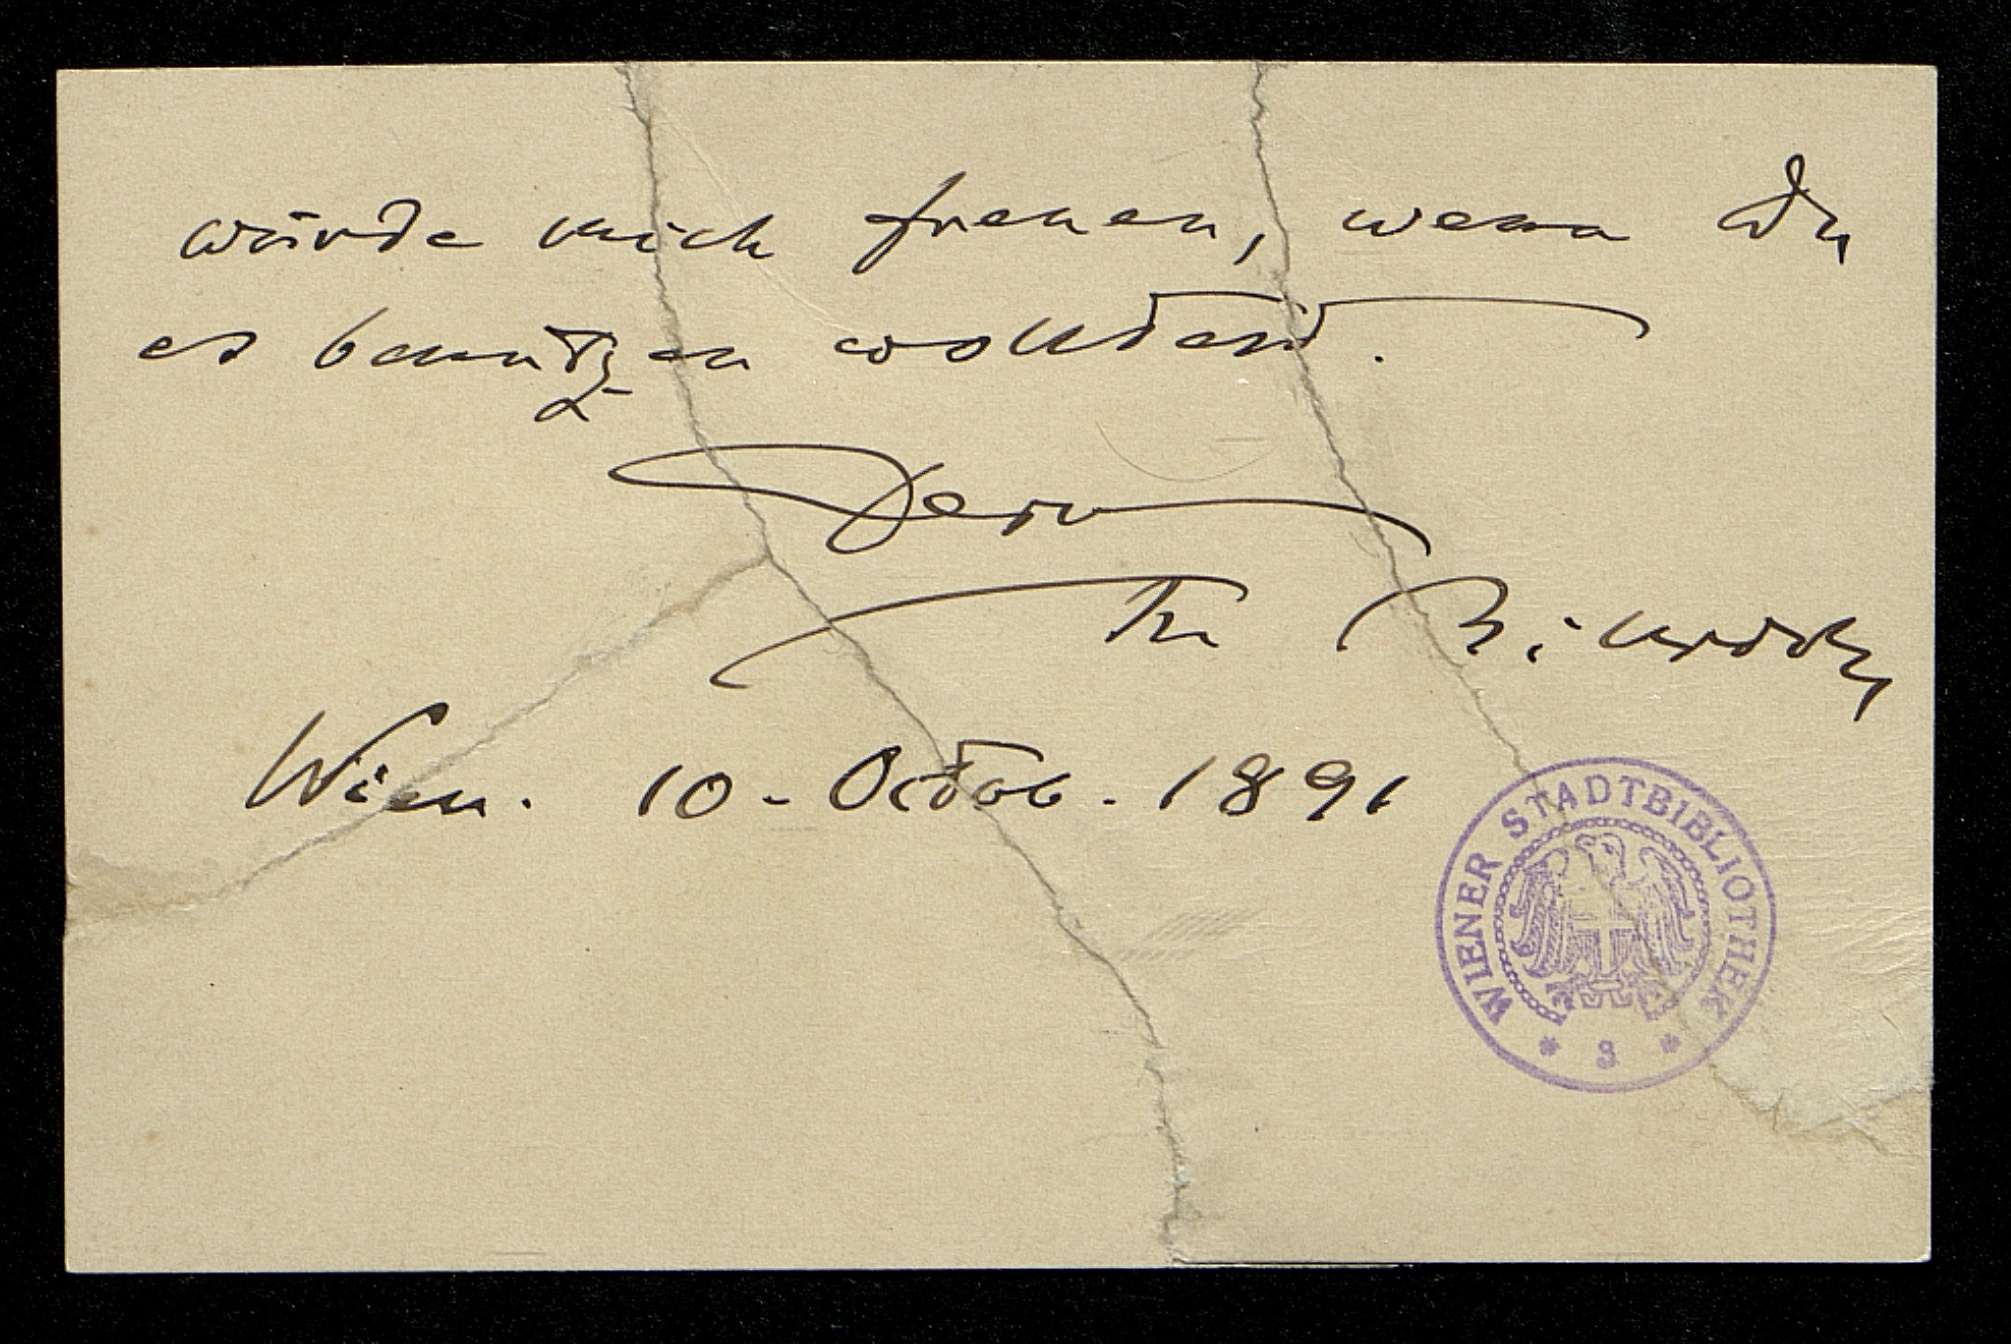 würde mich freuen, wenn Du
es benutzen wolltest.
Dein
Th Billroth
Wien. 10. Octob. 1891
WIENER STADTBIBLIOTHEK